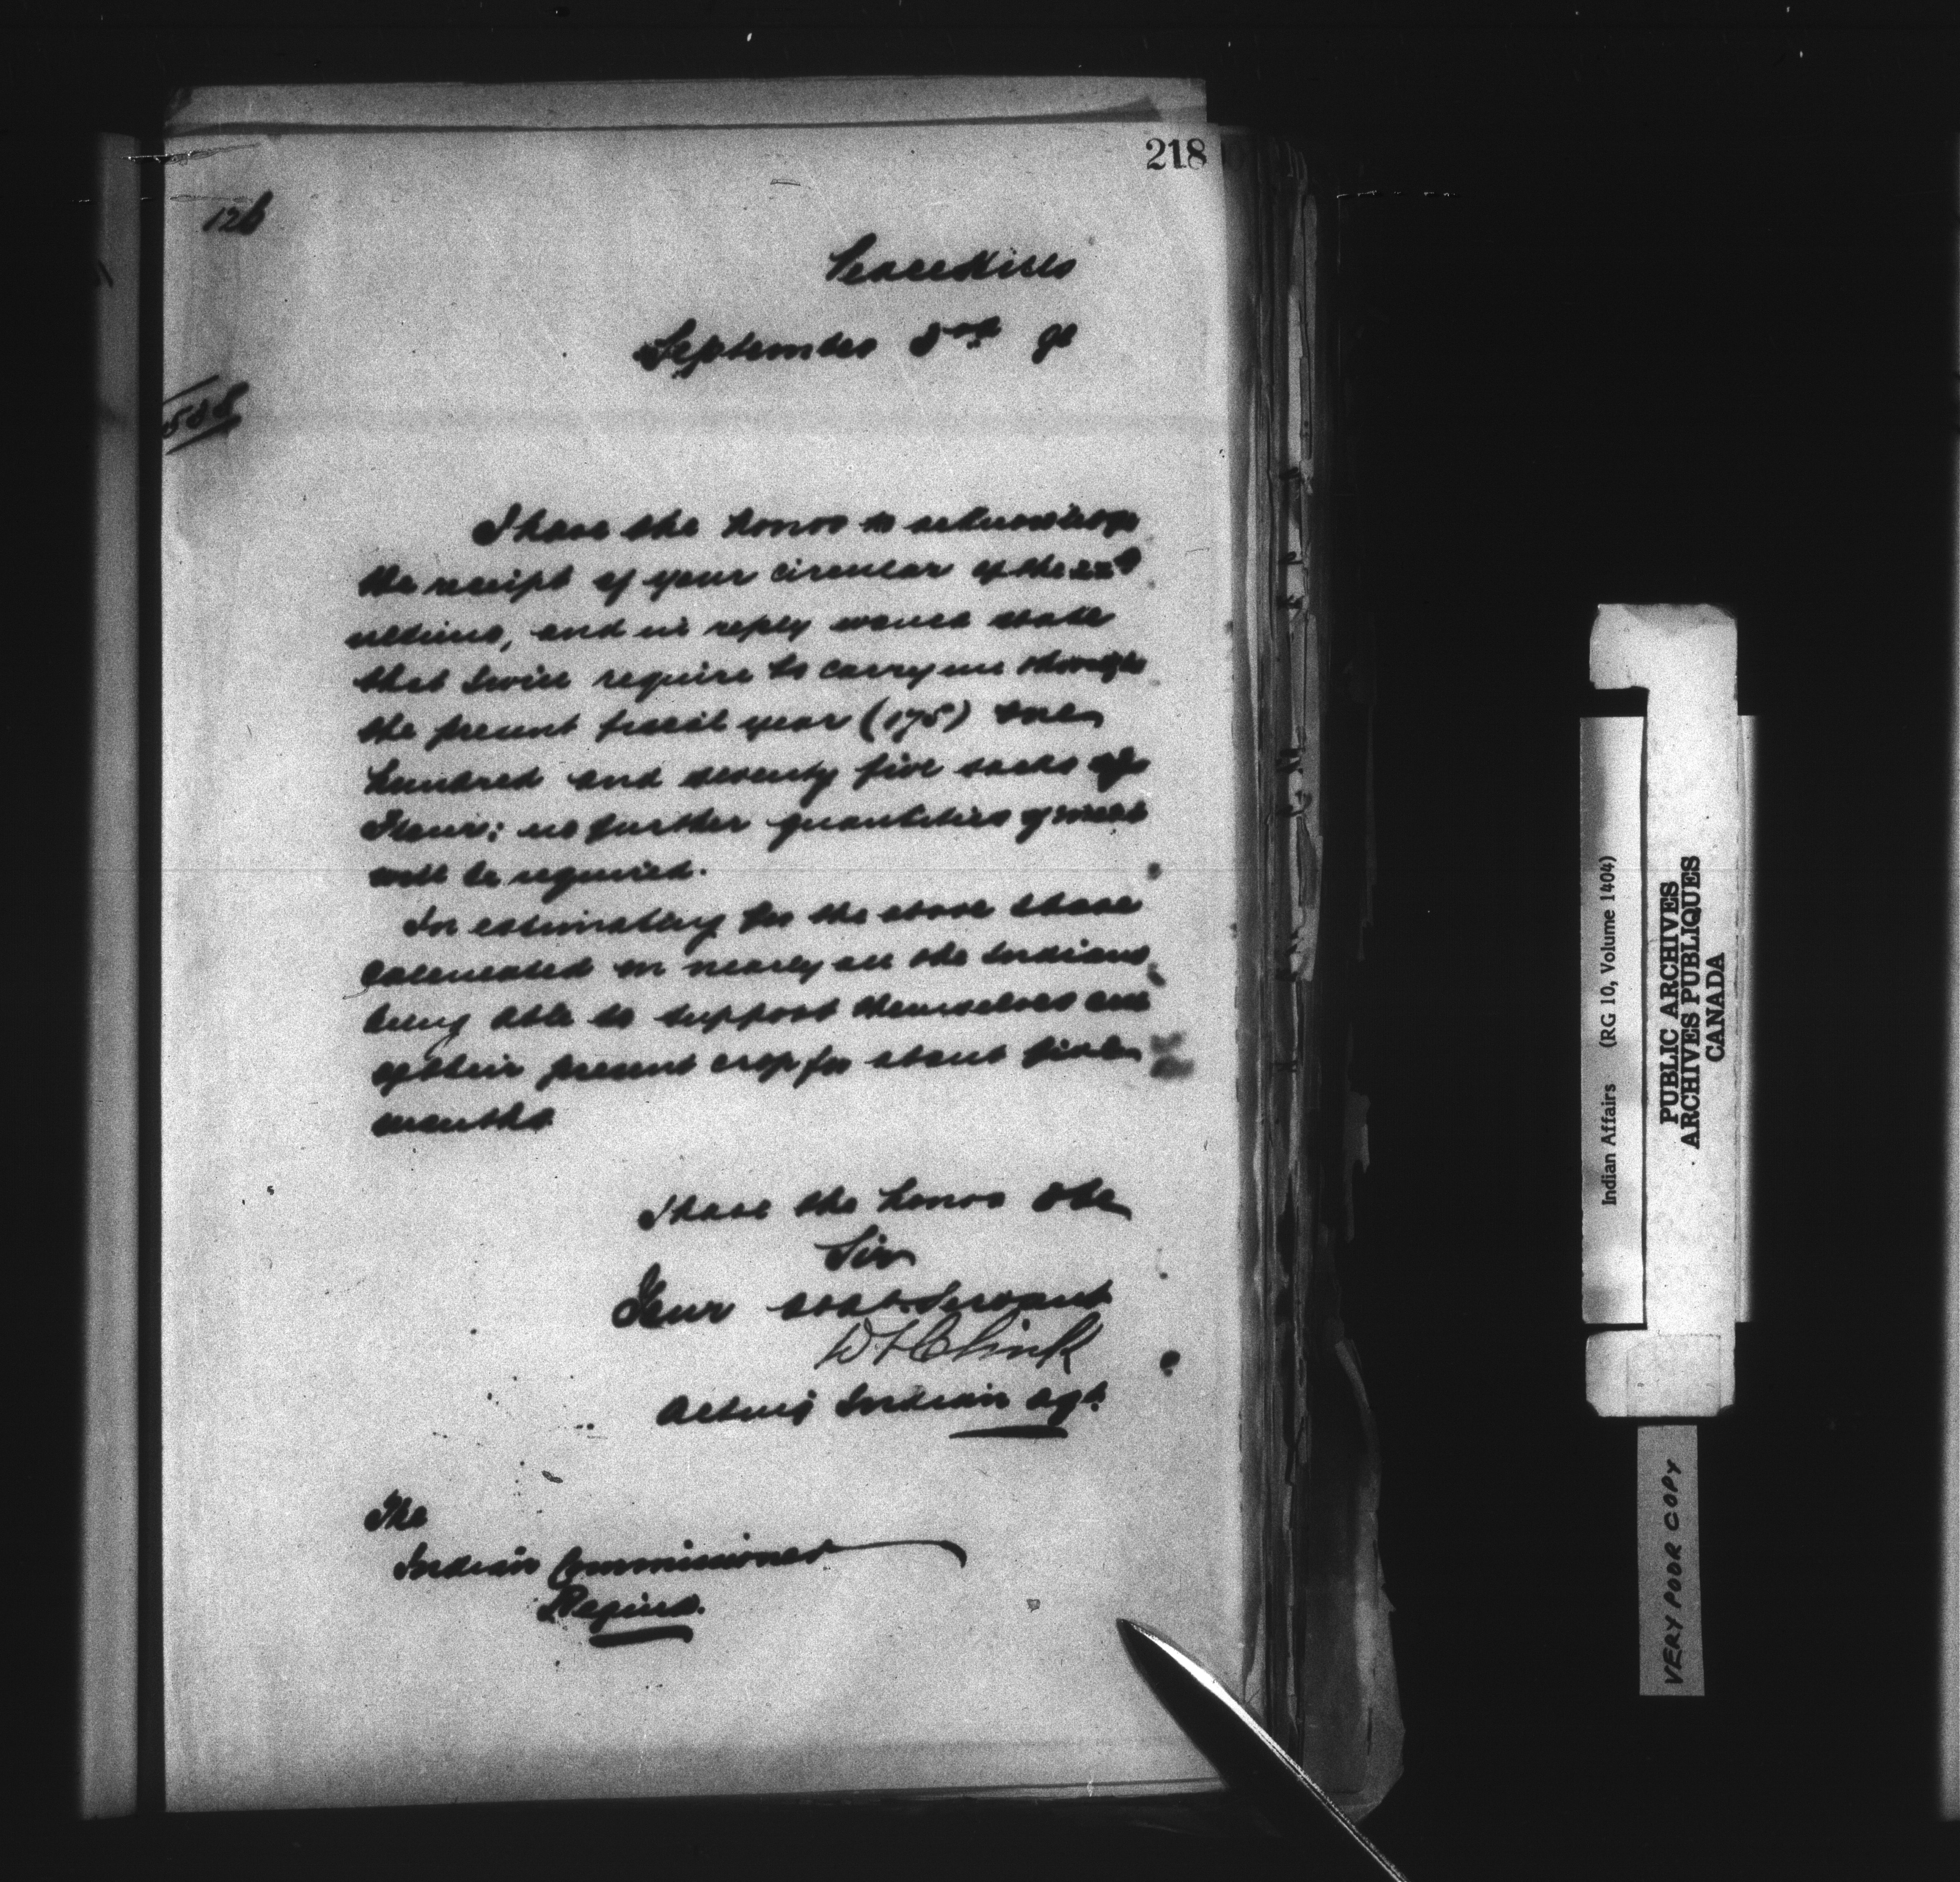 218
126
Peace Hills
September 3rd 91
I have the honor to acknowledge
the receipt of your circular of the 22d
ultimo, and in reply would state
that I will require to carry me through
the present fiscal year (175) one
hundred and seventy five sacks of
Flour; no further quantities of meat
will be required.
In estimating for the above I have
calculated on nearly all the Indians
being able to support themselves out
of their present crop for about five
months
I have the honor to be
Sir
Your obdt. Servant
D L Clink
Acting Indian Agt.
The
Indian Commissioner
Regina.
Indian Affairs (RG 10, Volume 1404)
PUBLIC ARCHIVES
ARCHIVES PUBLIQUES
CANADA
VERY POOR COPY